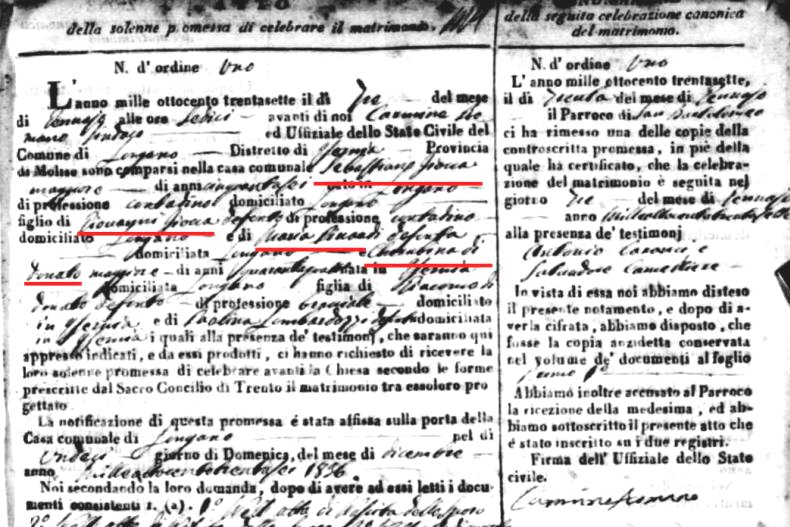 della solenne promessa di celebrare il matrimonio.
N. d' ordine Uno
L' anno mille ottocento trentasette il dì Tre del mese
di Gennajo alle ore Sedici avanti di noi Carmine Ro
mano Sindaco ed Uffiziale dello Stato Civile del
Comune di Longano Distretto di Isernia Provincia
di Molise sono comparsi nella casa comunale Sebastiano Ciocca
maggiore di anni cinquantasei nato in Longano
di professione contadino domiciliato Longano
figlio di Giovanni Ciocca defonto di professione contadino
domiciliato Longano e di Maria defonta
domiciliata Longano e Cherubina di
Donato maggiore di anni nata in Isernia
domiciliata Longano figlia di Giacomo di
Donato defonto di professione domiciliato
in Isernia e di Paolina Lombardozzi defonta domiciliata
in Isernia i quali alla presenza de' testimonj, che saranno qui
appresso indicati, e da essi prodotti, ci hanno richiesto di ricevere la
loro solenne promessa di celebrare avanti la Chiesa secondo le forme
prescritte dal Sacro Concilio di Trento il matrimonio tra essoloro pro
gettato
La notificazione di questa promessa é stata affissa sulla porta della
Casa comunale di Longano nel dì
Undeci giorno di Domenica, del mese di dicembre
anno Milleottocentotrentasei 1836
Noi secondando la loro domanda, dopo di avere ad essi letti i docu-
menti consistenti
della seguita celebrazione canonica
del matrimonio.
N. d' ordine Uno
L' anno mille ottocento trentasette,
il dì Trenta del mese di Gennajo
il Parroco di San Bartolomeo
ci ha rimesso una delle copie della
controscritta promessa, in piè della
quale ha certificato, che la celebra-
zione del matrimonio è seguita nel
giorno Tre del mese di Gennajo
anno
alla presenza de' testimonj
Antonio e
Salvadore
In vista di essa noi abbiamo disteso
il presente notamento, e dopo di a-
verla cifrata, abbiamo disposto, che
fosse la copia anzidetta conservata
nel volume de' documenti al foglio
Abbiamo inoltre accusato al Parroco
la ricezione della medesima, ed ab-
biamo sottoscritto il presente atto che
é stato inscritto su i due registri.
Firma dell' Uffiziale dello Stato
civile.
Carmine Romano